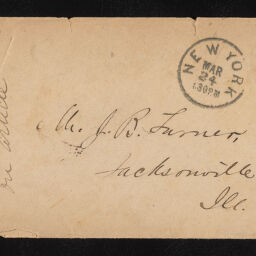 NEW YORK
MAR
24
130PM
Mr. J. B. Turner,
Jacksonville
Ill.